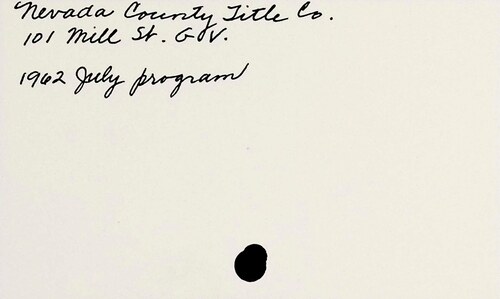 Nevada County Title Co.
101 Mill St. G.V.
1962 July program